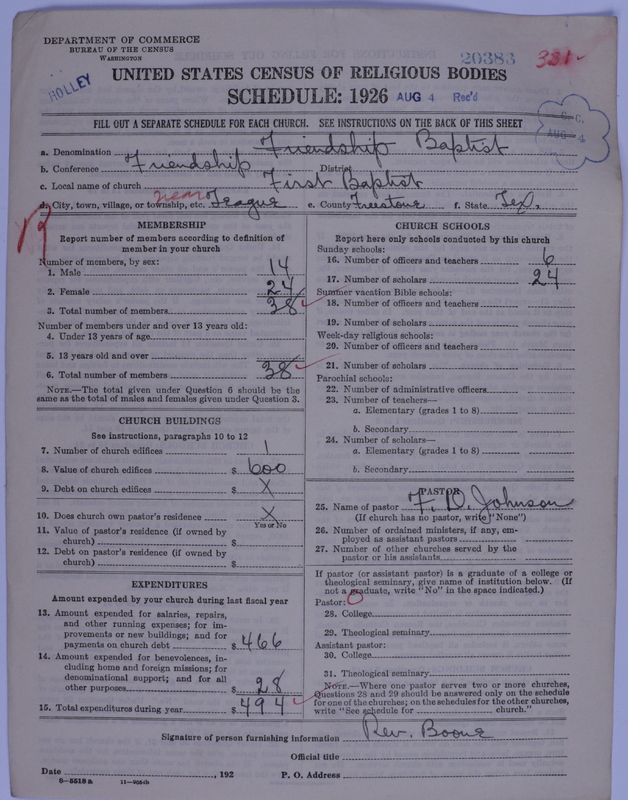 DEPARTMENT OF COMMERCE
BUREAU OF THE CENSUS
WASHINGTON
20383 331
HOLLEY
UNITED STATES CENSUS OF RELIGIOUS BODIES
SCHEDULE: 1926 AUG 4 Rec'd
FILL OUT A SEPARATE SCHEDULE FOR EACH CHURCH. SEE INSTRUCTIONS ON THE BACK OF THIS SHEET
AUG 4
a. Denomination Friendship Baptist
b. Conference Friendship District
c. Local name of church First Baptist
d. City, town, village, or township, etc. near Teague e. County Freestone f. State Tex.
R
MEMBERSHIP
Report number of members according to definition of
member in your church
Number of members, by sex:
1. Male 14
2. Female 24
3. Total number of members 38
Number of members under and over 13 years old:
4. Under 13 years of age
5. 13 years old and over
6. Total number of members 38
NOTE.—The total given under Question 6 should be the
same as the total of males and females given under Question 3.
CHURCH BUILDINGS
See instructions, paragraphs 10 to 12
7. Number of church edifices 1
8. Value of church edifices $ 600
9. Debt on church edifices $ X
10. Does church own pastor's residence X
Yes or No
11. Value of pastor's residence (if owned by
church) $
12. Debt on pastor's residence (if owned by
church) $
EXPENDITURES
Amount expended by your church during last fiscal year
13. Amount expended for salaries, repairs,
and other running expenses; for im-
provements or new buildings; and for
payments on church debt $ 466
14. Amount expended for benevolences, in-
cluding home and foreign missions; for
denominational support; and for all
other purposes $ 28
15. Total expenditures during year $ 494
CHURCH SCHOOLS
Report here only schools conducted by this church
Sunday schools:
16. Number of officers and teachers 6
17. Number of scholars 24
Summer vacation Bible schools:
18. Number of officers and teachers
19. Number of scholars
Week-day religious schools:
20. Number of officers and teachers
21. Number of scholars
Parochial schools:
22. Number of administrative officers
23. Number of teachers—
a. Elementary (grades 1 to 8)
b. Secondary
24. Number of scholars—
a. Elementary (grades 1 to 8)
b. Secondary
PASTOR
25. Name of pastor F. D. Johnson
(If church has no pastor, write "None")
26. Number of ordained ministers, if any, em-
ployed as assistant pastors
27. Number of other churches served by the
pastor or his assistants
If pastor (or assistant pastor) is a graduate of a college or
theological seminary, give name of institution below. (If
not a graduate, write "No" in the space indicated.)
Pastor: O
28. College
29. Theological seminary
Assistant pastor:
30. College
31. Theological seminary
NOTE.—Where one pastor serves two or more churches,
Questions 28 and 29 should be answered only on the schedule
for one of the churches; on the schedules for the other churches,
write "See schedule for church."
Signature of person furnishing information Rev. Boone
Official title
Date , 192 P. O. Address
8—5518 a